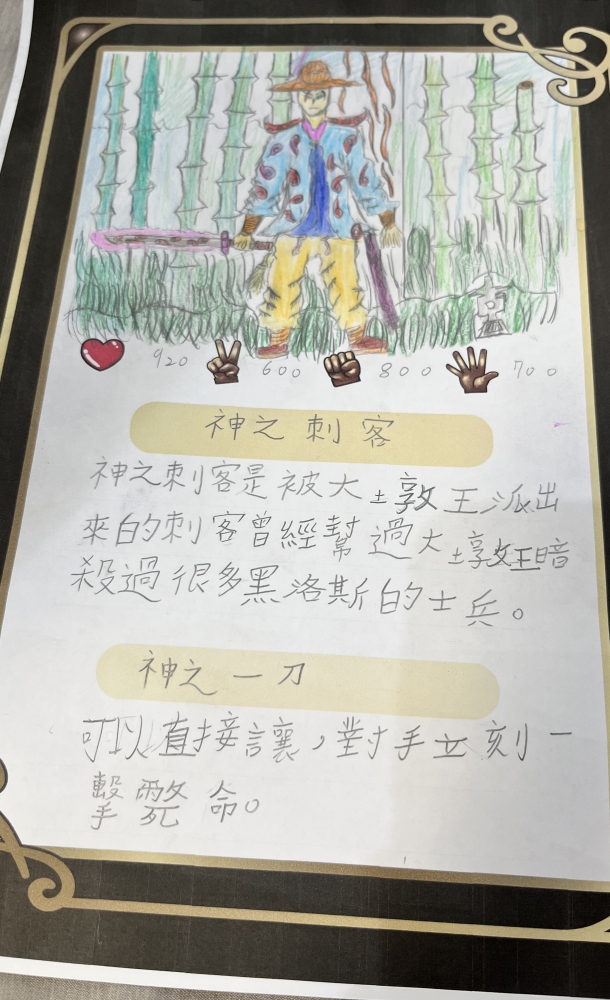 920 600 800 700
神之刺客
神之刺客是被大墩王派出
來的刺客曾經幫過大墩王暗
殺過很多黑洛斯的士兵。
神之一刀
可以直接讓,對手立刻一
擊斃命。